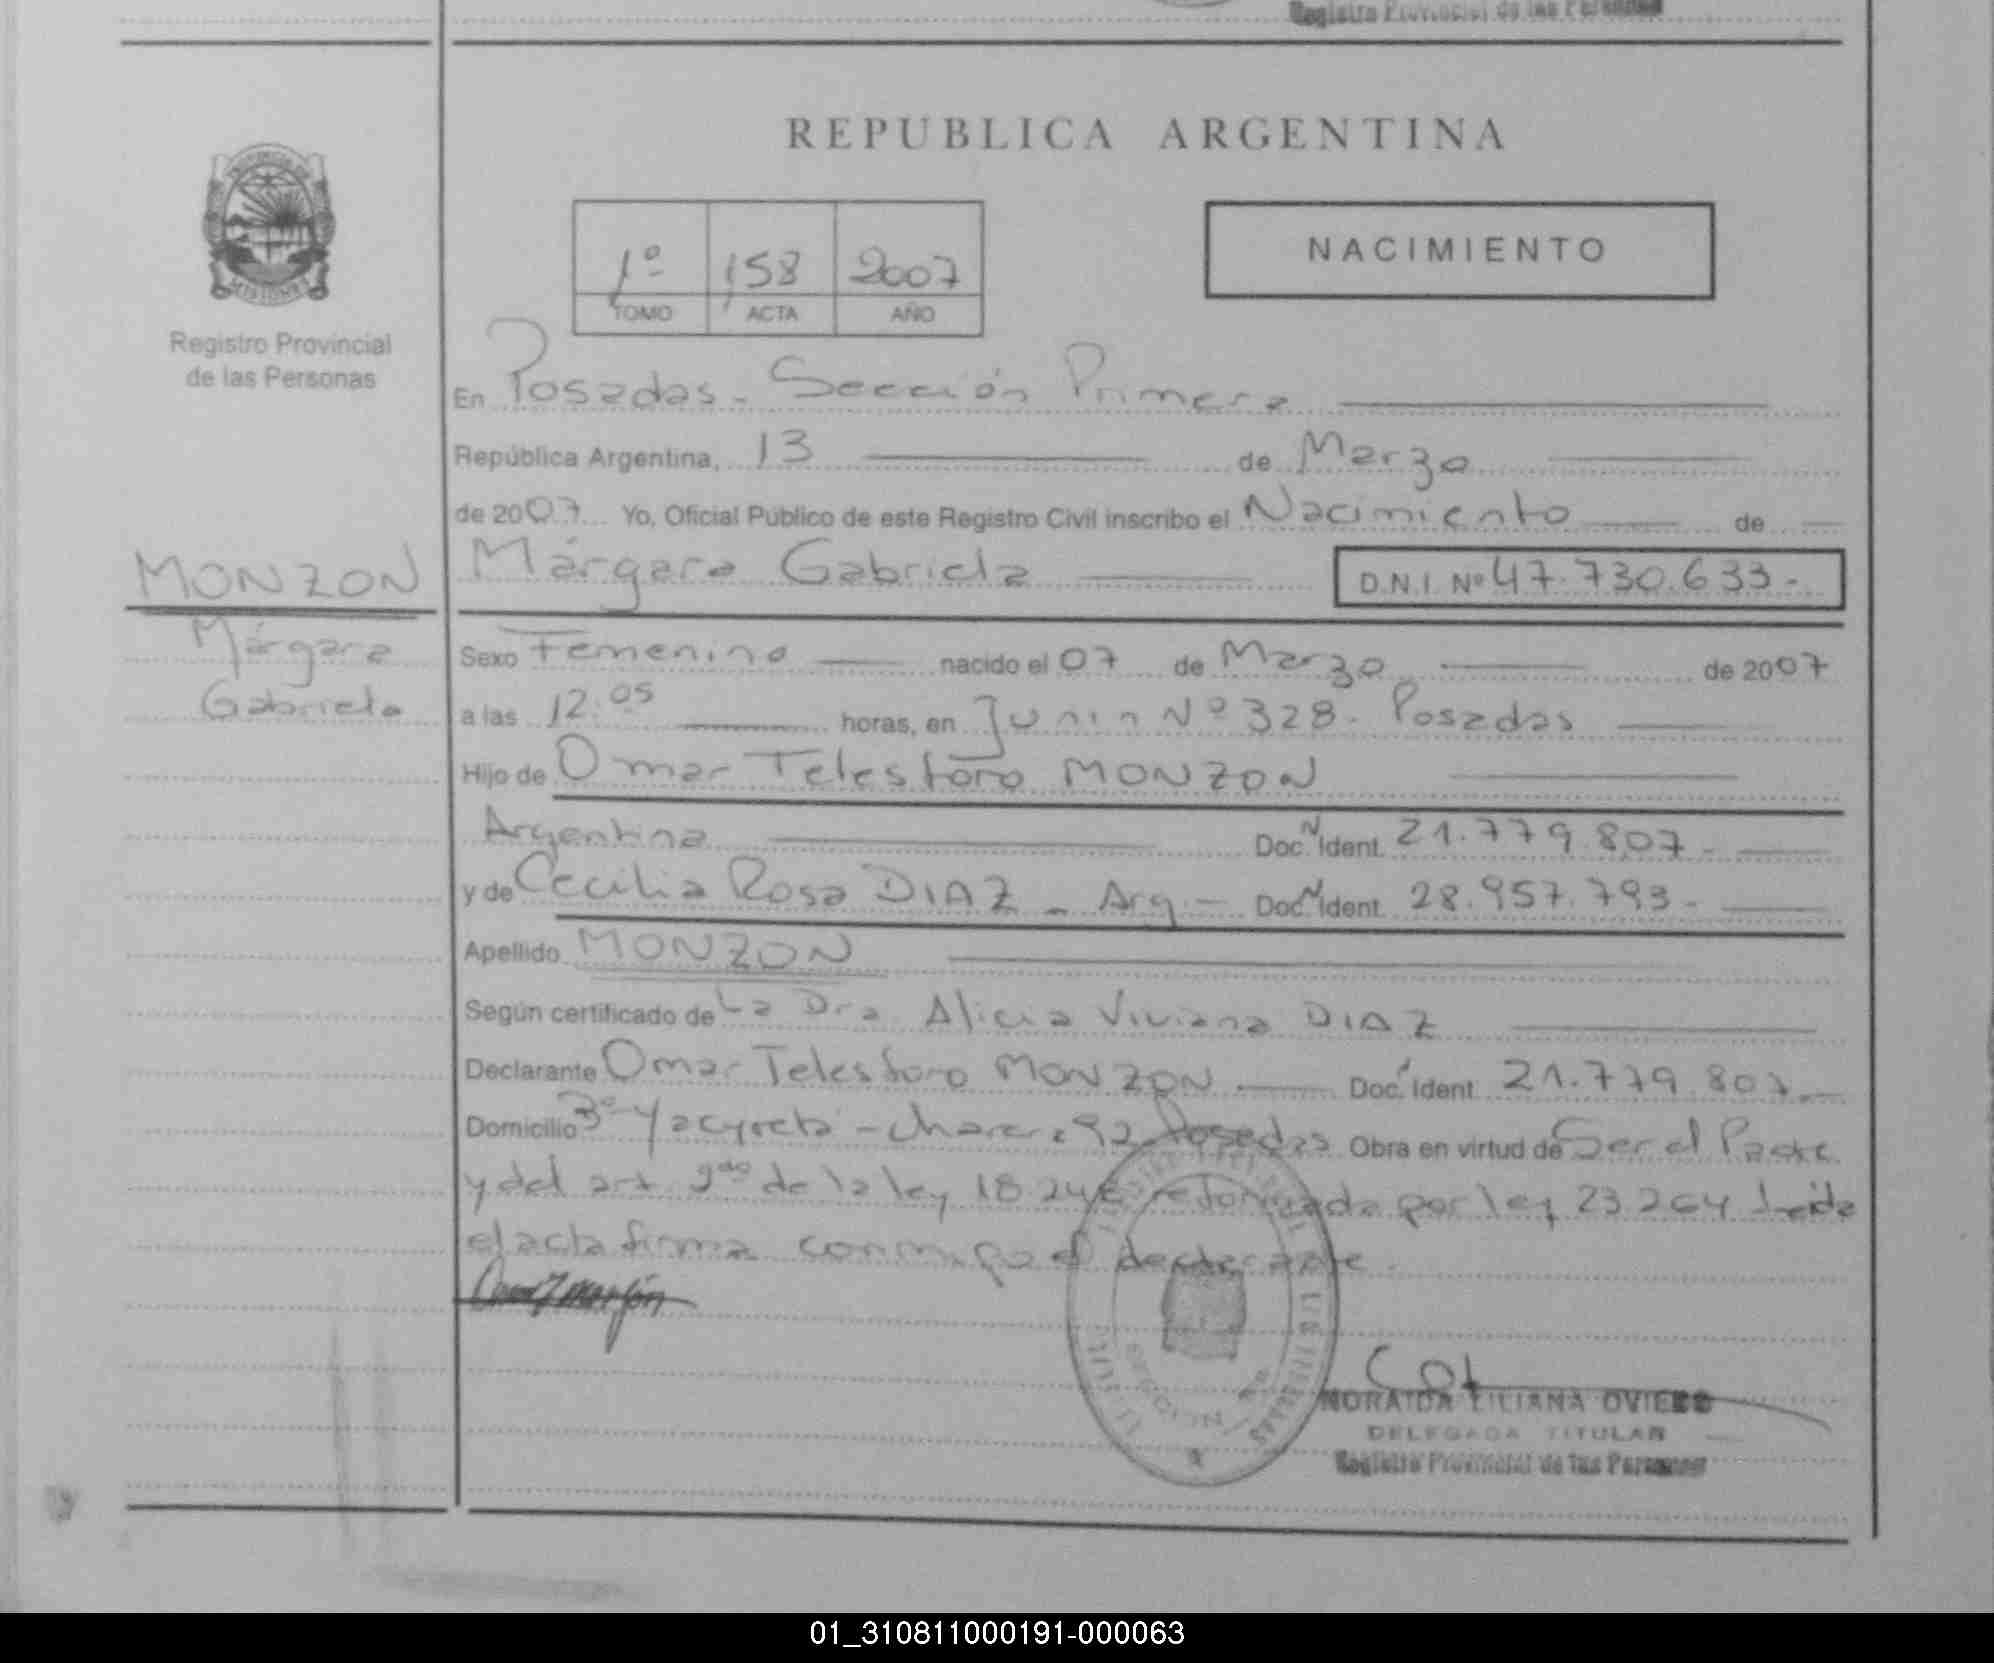 Registro Provincial de las Personas
REPUBLICA ARGENTINA
NACIMIENTO
1º 158 2007
TOMO ACTA AÑO
MISIONES
Registro Provincial
de las Personas
En Posadas - Sección Primera
República Argentina, 13 de Marzo
de 2007 Yo, Oficial Público de este Registro Civil inscribo el Nacimiento de
MONZON
Márgara Gabriela D.N.I. Nº 47.730.633.-
Márgara
Gabriela
Sexo Femenino nacido el 07 de Marzo de 2007
a las 12:05 horas, en Junin Nº 328. Posadas
Hijo de Omar Telesforo MONZON
Argentina Doc. N Ident. 21.779.807-
y de Cecilia Rosa DIAZ - Arg - Doc. N Ident. 28.957.793-
Apellido MONZON
Según certificado de La Dra Alicia Viviana DIAZ
Declarante Omar Telesforo MONZON Doc. Ident. 21.779.807.
Domicilio Yacyreta - chacra 92 Posadas Obra en virtud de Ser el Padre
y del art 2do de la ley 18.248 reformada por ley 23.264 Leida
el acta firma conmigo el declarante.
NORAIDA LILIANA OVIEDO
DELEGADA TITULAR
Registro Provincial de las Personas
01_310811000191-000063